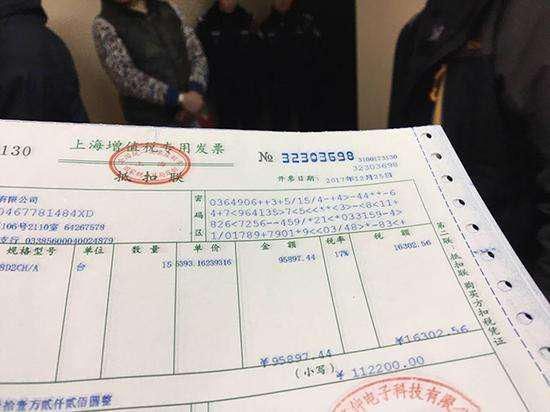 130
上海增值税专用发票
№ 32303698 3100173130
32303698
抵扣联
开票日期: 2017年12月25日
有限公司
0467781484XD
106号2110室 64267578
支行 033856000400 24879
密码区
0364906++3+5/15/4-+4>-44**-6
4+7<964135>7<5<<*+<3>-<8<11+
826<7256--459/*21<*033159-4>
1/01789+7901+9<<03/48>*-83<+
规格型号 单位 数量 单价 金额 税率 税额
8D2CH/A 台 15 5593.16239316 95897.44 17% 16302.56
¥95897.44 ¥16302.56
(小写) ¥112200.00
拾壹万贰仟贰佰圆整
电子科技有限
第二联 抵扣联 购买方扣税凭证